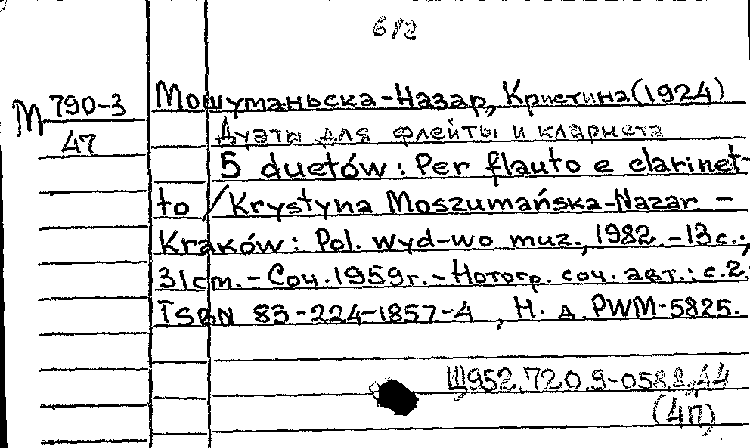 6/2
М 790-3
47
Мошуманьска-Назар, Кристина (1924)
Дуэты для флейты и кларнета
5 duetów : Per flauto e clarinet-
to / Krystyna Moszumańska-Nazar -
Kraków : Pol. wyd-wo muz., 1982. - 13 с.;
31 cm. - Соч. 1959г. - Нотогр. соч. авт.: с.2.
ISBN 83-224-1857-4, Н. д. PWM-5825.
Щ952.720.9-058.8,44
(4П)